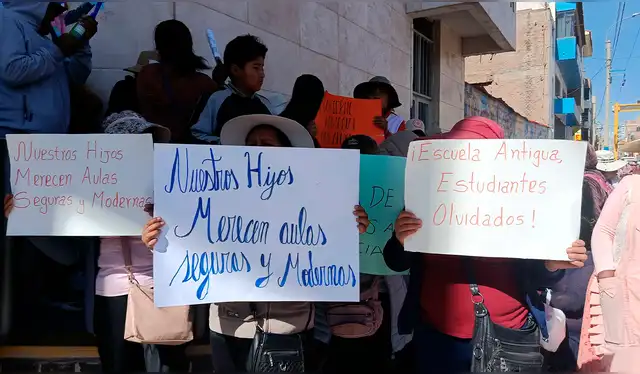 Nuestros Hijos
Merecen Aulas
Seguras y Modernas
Nuestros Hijos
Merecen aulas
seguras y Modernas
DE
¡Escuela Antigua,
Estudiantes
Olvidados!